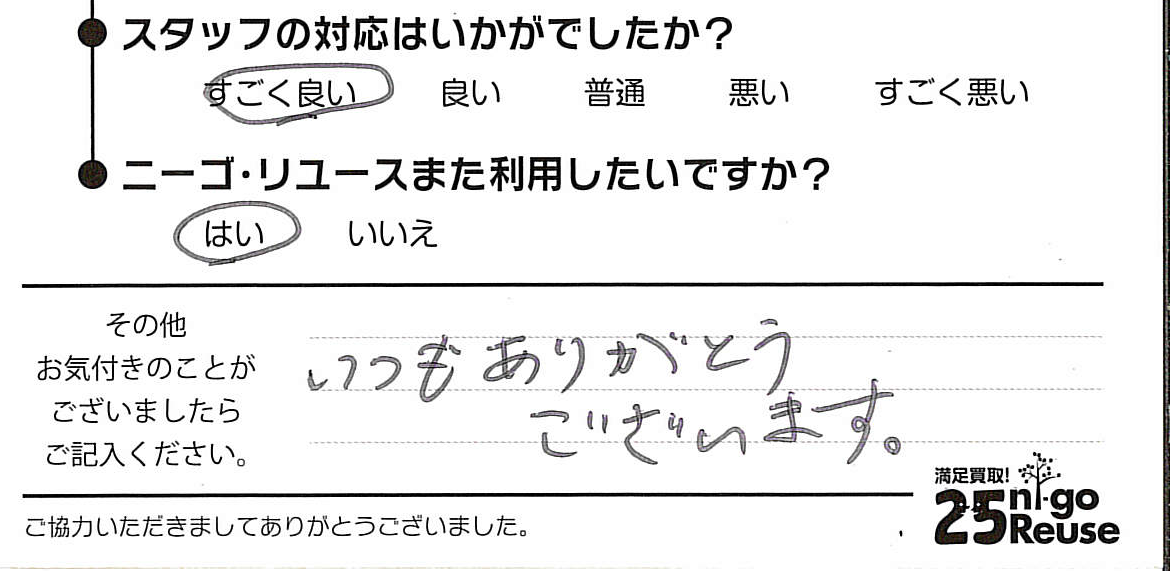 スタッフの対応はいかがでしたか？
すごく良い 良い 普通 悪い すごく悪い
ニーゴ・リユースまた利用したいですか？
はい いいえ
その他
お気付きのことが
ございましたら
ご記入ください。
いつもありがとう
ございます。
ご協力いただきましてありがとうございました。
満足買取!
25 ni-go
Reuse